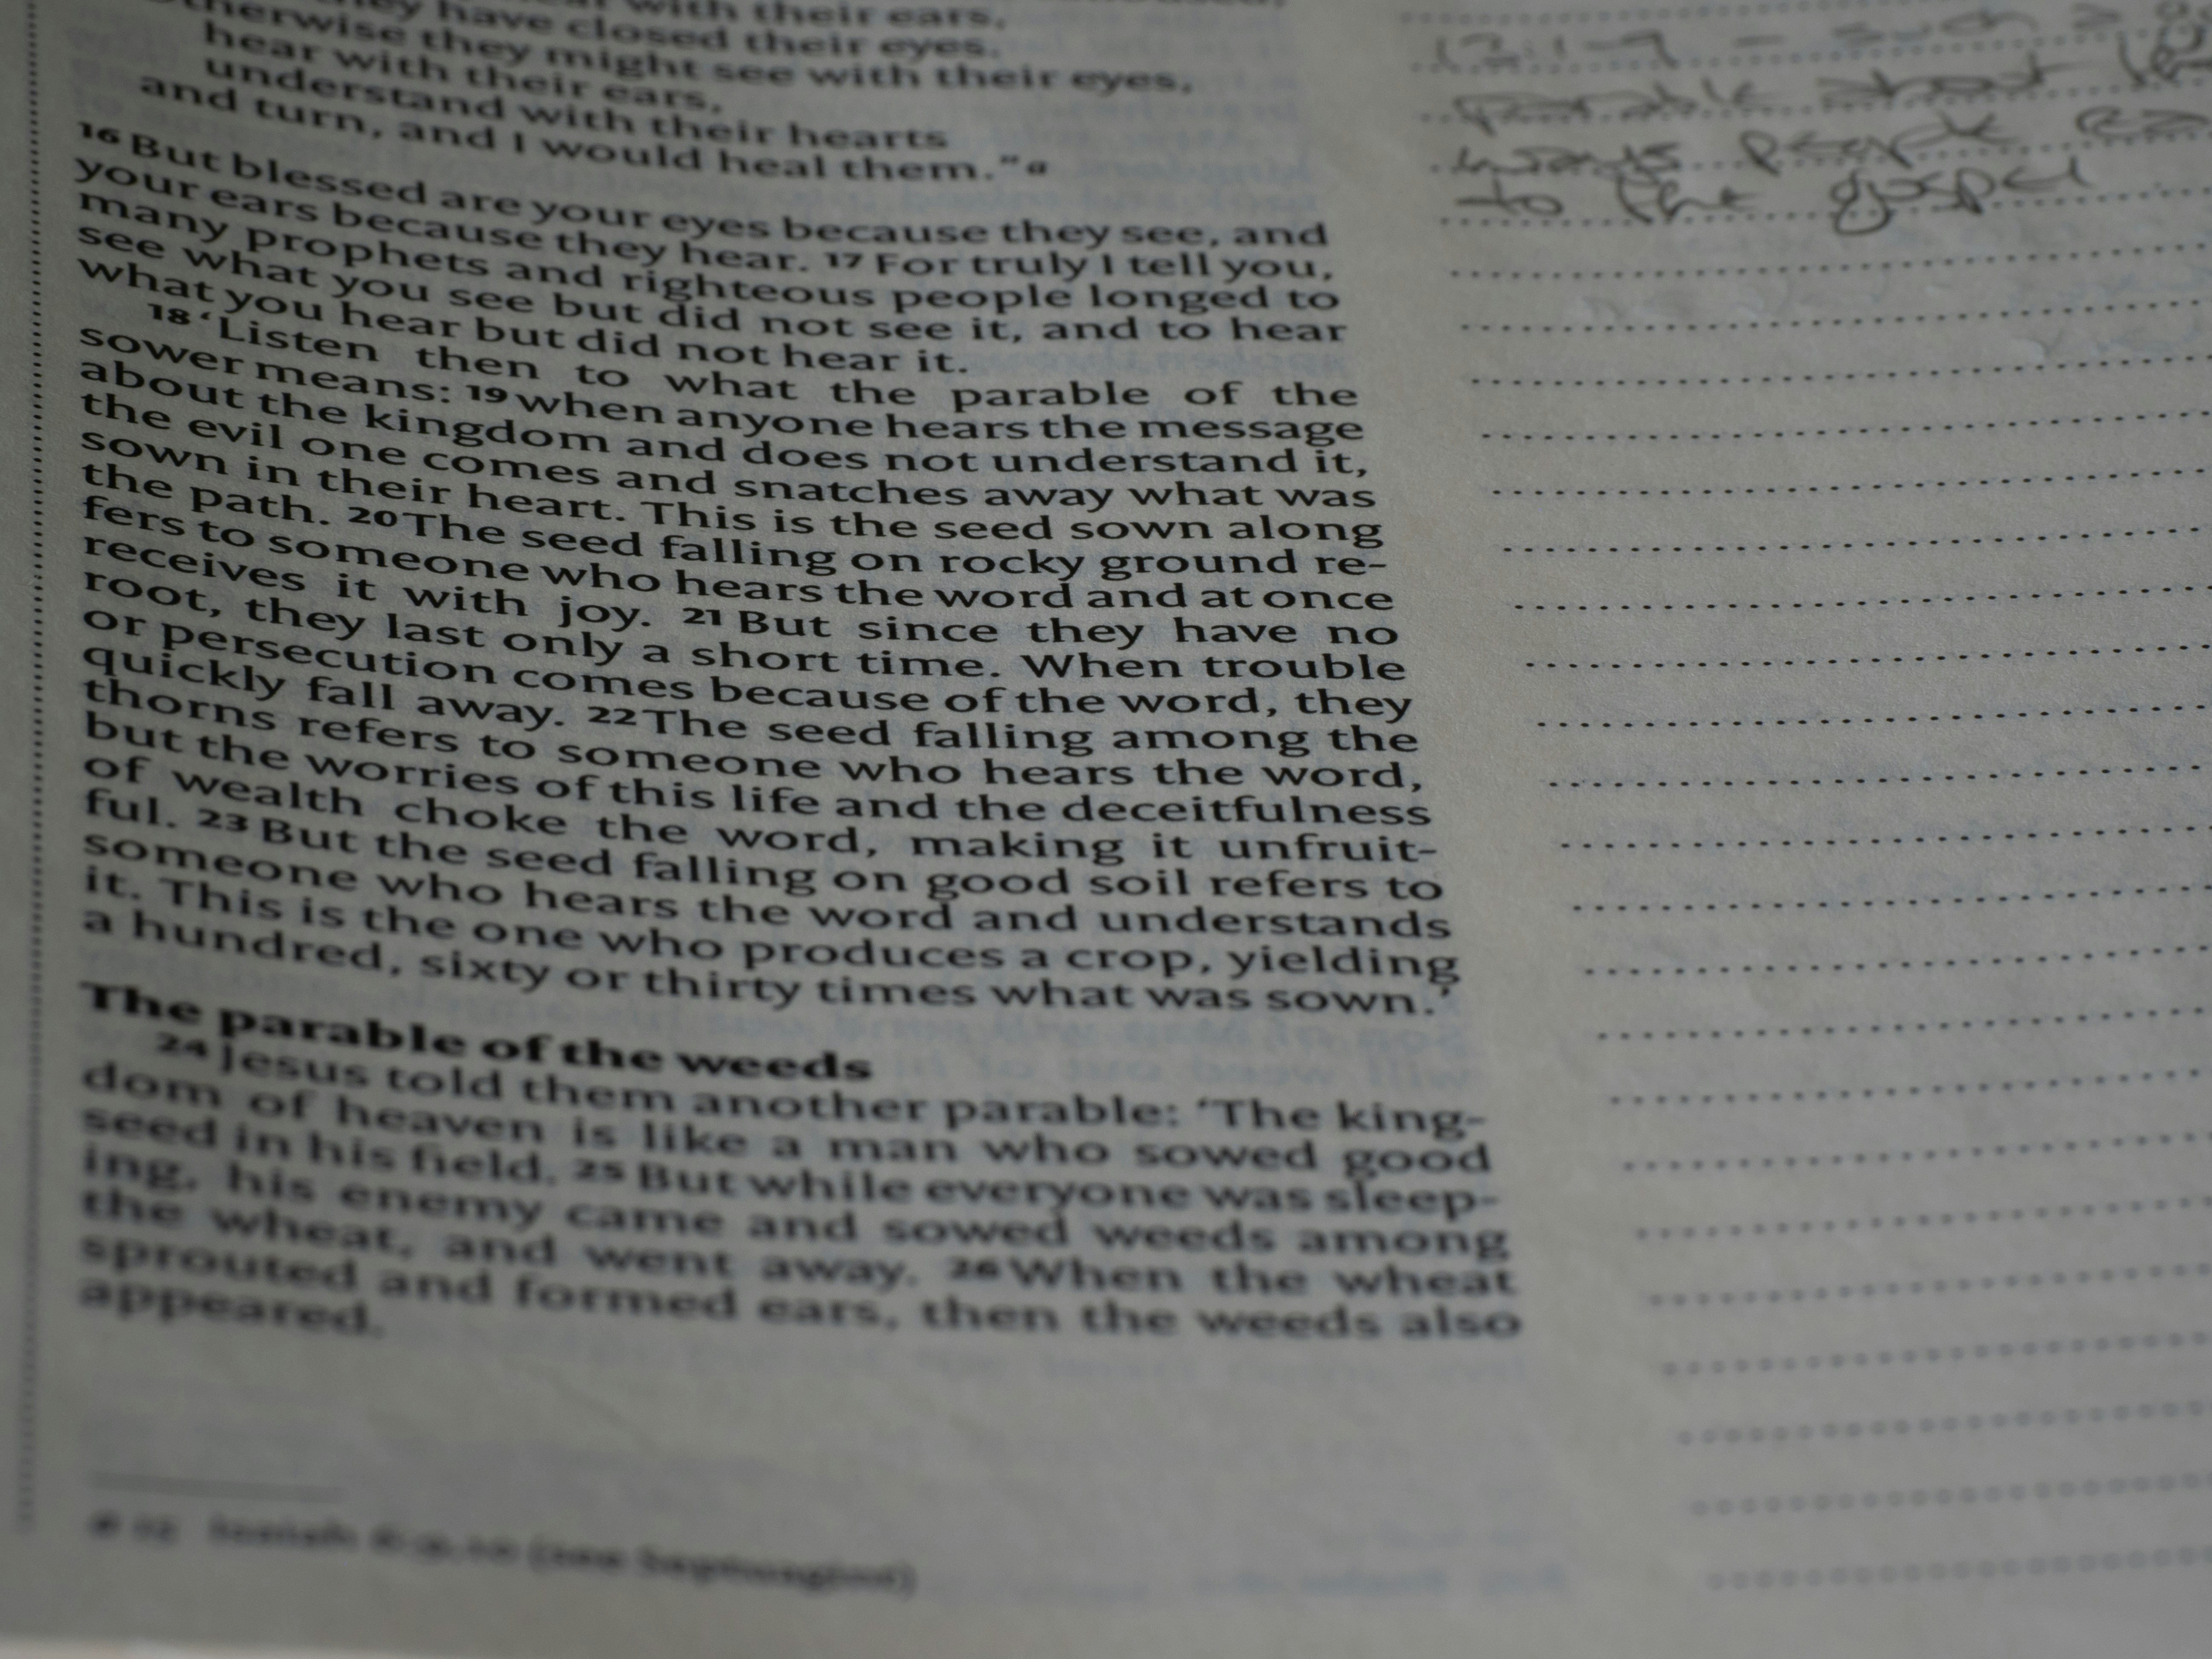 with their ears,
they have closed their eyes.
Otherwise they might see with their eyes,
hear with their ears,
understand with their hearts
and turn, and I would heal them." a
16 But blessed are your eyes because they see, and
your ears because they hear. 17 For truly I tell you,
many prophets and righteous people longed to
see what you see but did not see it, and to hear
what you hear but did not hear it.
18 ‘Listen then to what the parable of the
sower means: 19 when anyone hears the message
about the kingdom and does not understand it,
the evil one comes and snatches away what was
sown in their heart. This is the seed sown along
the path. 20 The seed falling on rocky ground re-
fers to someone who hears the word and at once
receives it with joy. 21 But since they have no
root, they last only a short time. When trouble
or persecution comes because of the word, they
quickly fall away. 22 The seed falling among the
thorns refers to someone who hears the word,
but the worries of this life and the deceitfulness
of wealth choke the word, making it unfruit-
ful. 23 But the seed falling on good soil refers to
someone who hears the word and understands
it. This is the one who produces a crop, yielding
a hundred, sixty or thirty times what was sown.’
The parable of the weeds
24 Jesus told them another parable: ‘The king-
dom of heaven is like a man who sowed good
seed in his field. 25 But while everyone was sleep-
ing, his enemy came and sowed weeds among
the wheat, and went away. 26 When the wheat
sprouted and formed ears, then the weeds also
appeared.
Isaiah 6:9,10 (see Septuagint)
parable about
ways people
to the gospel